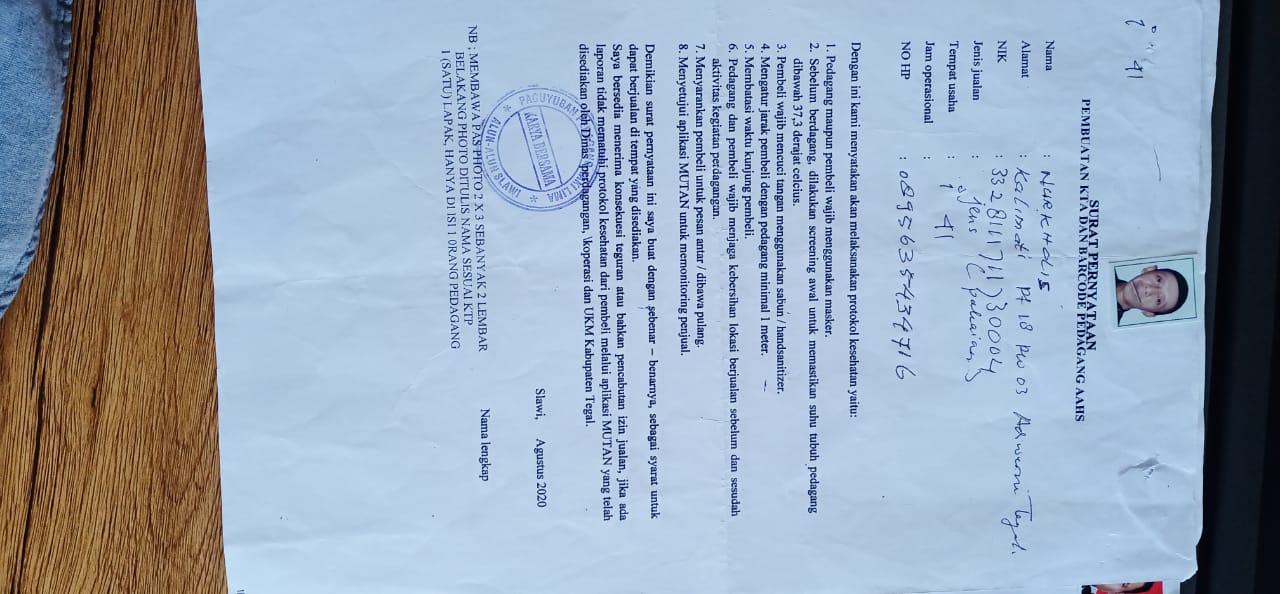 i 41
SURAT PERNYATAAN
PEMBUATAN KTA DAN BARCODE PEDAGANG AAHS
Nama : NURKHOLIS
Alamat : Kalimati Rt 18 Rw 03 Adiwerna Tegal.
NIK : 3328111711730004
Jenis jualan : Jens (pakaian)
Tempat usaha : i 41
Jam operasional :
NO HP : 0895635434716
Dengan ini kami menyatakan akan melaksanakan protokol kesehatan yaitu:
1. Pedagang maupun pembeli wajib menggunakan masker.
2. Sebelum berdagang, dilakukan screening awal untuk memastikan suhu tubuh pedagang
dibawah 37,3 derajat celcius.
3. Pembeli wajib mencuci tangan menggunakan sabun / handsanitizer.
4. Mengatur jarak pembeli dengan pedagang minimal 1 meter.
5. Membatasi waktu kunjung pembeli.
6. Pedagang dan pembeli wajib menjaga kebersihan lokasi berjualan sebelum dan sesudah
aktivitas kegiatan perdagangan.
7. Menyarankan pembeli untuk pesan antar / dibawa pulang.
8. Menyetujui aplikasi MUTAN untuk memonitoring penjual.
Demikian surat pernyataan ini saya buat dengan sebenar – benarnya, sebagai syarat untuk
dapat berjualan di tempat yang disediakan.
Saya bersedia menerima konsekuesi teguran atau bahkan pencabutan izin jualan, jika ada
laporan tidak mematuhi protokol kesehatan dari pembeli melalui aplikasi MUTAN yang telah
disediakan oleh Dinas perdagangan, koperasi dan UKM Kabupaten Tegal.
PAGUYUBAN PEDAGANG KAKI LIMA
KARYA BERSAMA
ALUN-ALUN SLAWI
Slawi, Agustus 2020
Nama lengkap
NB : MEMBAWA PAS PHOTO 2 X 3 SEBANYAK 2 LEMBAR
BELAKANG PHOTO DITULIS NAMA SESUAI KTP
1 (SATU) LAPAK, HANYA DI ISI 1 ORANG PEDAGANG